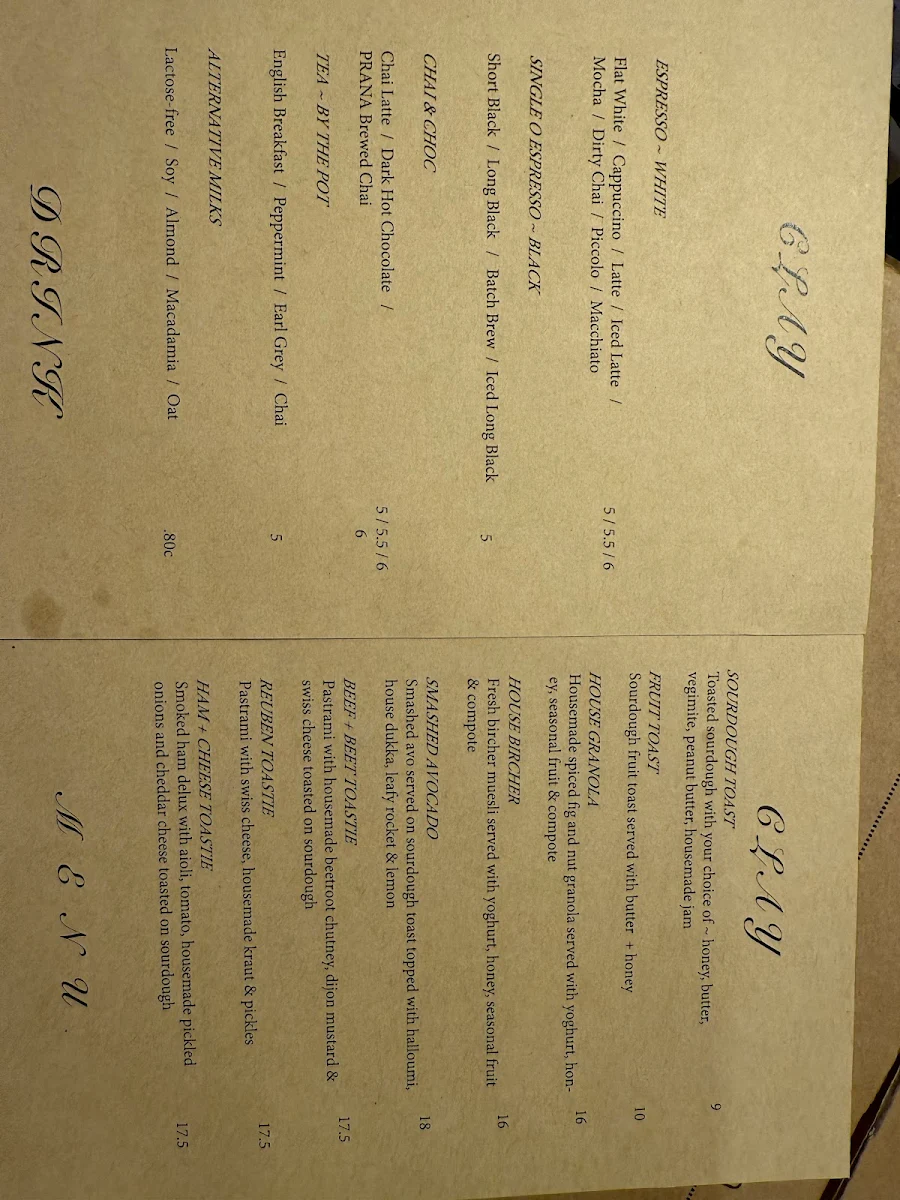 CLAY
ESPRESSO ~ WHITE
Flat White / Cappuccino / Latte / Iced Latte /
Mocha / Dirty Chai / Piccolo / Macchiato 5 / 5.5 / 6
SINGLE O ESPRESSO ~ BLACK
Short Black / Long Black / Batch Brew / Iced Long Black 5
CHAI & CHOC
Chai Latte / Dark Hot Chocolate / 5 / 5.5 / 6
PRANA Brewed Chai 6
TEA ~ BY THE POT
English Breakfast / Peppermint / Earl Grey / Chai 5
ALTERNATIVE MILKS
Lactose-free / Soy / Almond / Macadamia / Oat .80c
DRINK
CLAY
SOURDOUGH TOAST
Toasted sourdough with your choice of ~ honey, butter, 9
vegimite, peanut butter, housemade jam
FRUIT TOAST
Sourdough fruit toast served with butter + honey 10
HOUSE GRANOLA
Housemade spiced fig and nut granola served with yoghurt, hon- 16
ey, seasonal fruit & compote
HOUSE BIRCHER
Fresh bircher muesli served with yoghurt, honey, seasonal fruit 16
& compote
SMASHED AVOCADO
Smashed avo served on sourdough toast topped with halloumi, 18
house dukka, leafy rocket & lemon
BEEF + BEET TOASTIE
Pastrami with housemade beetroot chutney, dijon mustard & 17.5
swiss cheese toasted on sourdough
REUBEN TOASTIE
Pastrami with swiss cheese, housemade kraut & pickles 17.5
HAM + CHEESE TOASTIE
Smoked ham delux with aioli, tomato, housemade pickled 17.5
onions and cheddar cheese toasted on sourdough
MENU